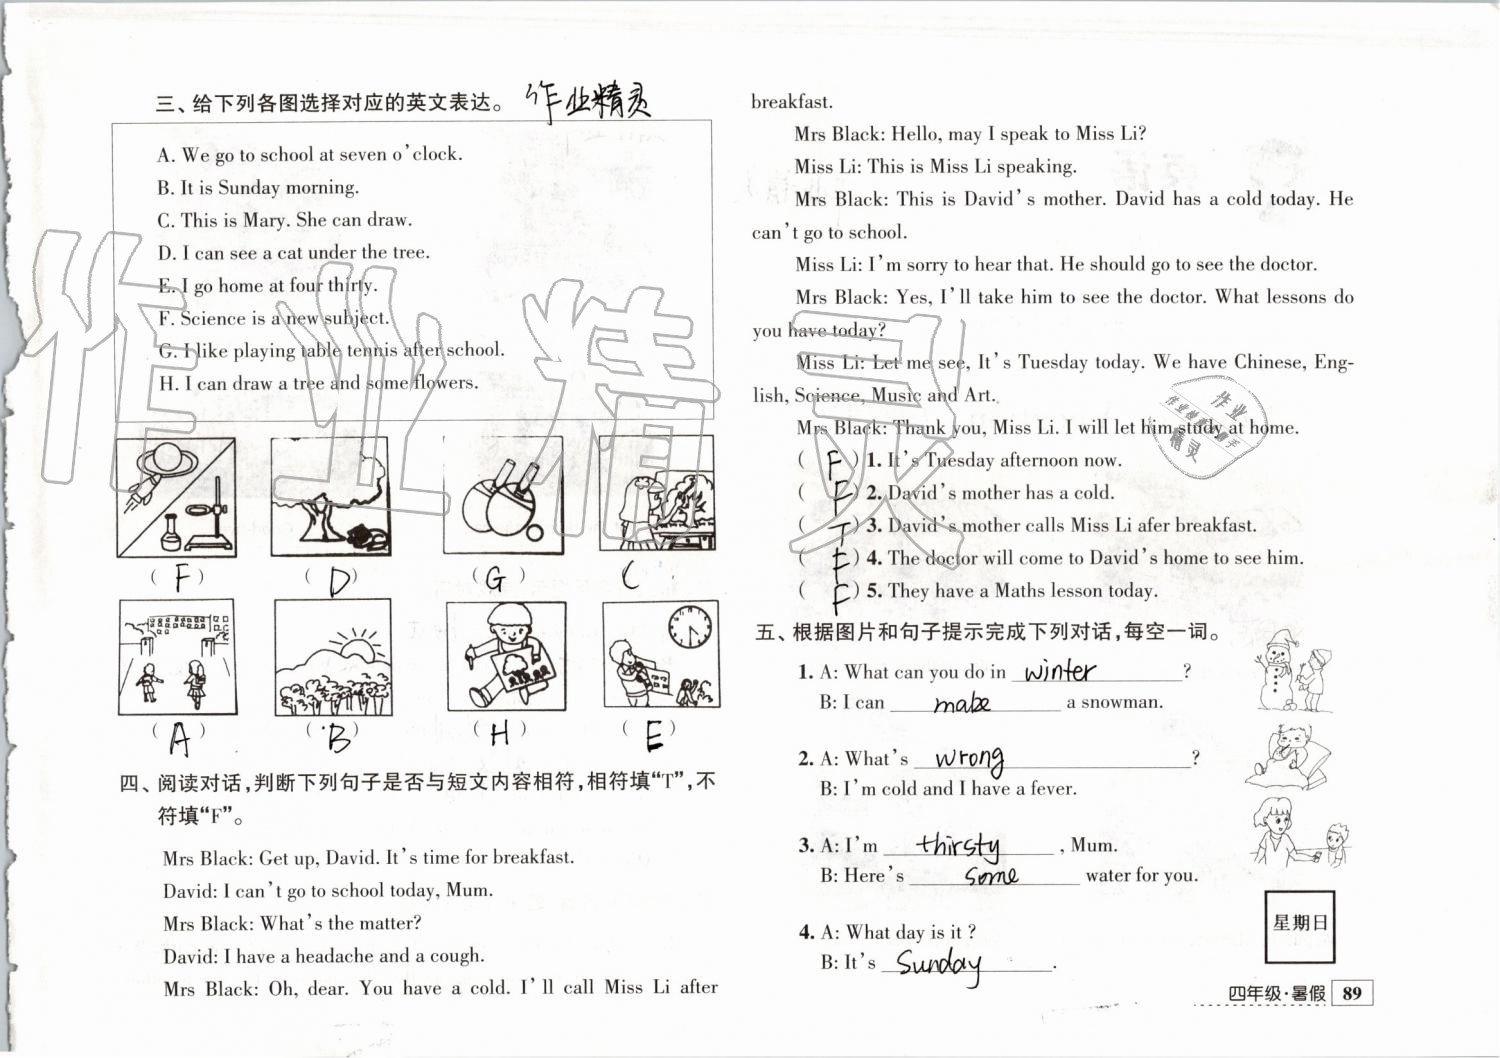 三、给下列各图选择对应的英文表达。 作业精灵
A. We go to school at seven o'clock.
B. It is Sunday morning.
C. This is Mary. She can draw.
D. I can see a cat under the tree.
E. I go home at four thirty.
F. Science is a new subject.
G. I like playing table tennis after school.
H. I can draw a tree and some flowers.
( F ) ( D ) ( G ) C
( A ) ( B ) ( H ) ( E )
四、阅读对话,判断下列句子是否与短文内容相符,相符填“T”,不
符填“F”。
Mrs Black: Get up, David. It's time for breakfast.
David: I can't go to school today, Mum.
Mrs Black: What's the matter?
David: I have a headache and a cough.
Mrs Black: Oh, dear. You have a cold. I'll call Miss Li after
breakfast.
Mrs Black: Hello, may I speak to Miss Li?
Miss Li: This is Miss Li speaking.
Mrs Black: This is David's mother. David has a cold today. He
can't go to school.
Miss Li: I'm sorry to hear that. He should go to see the doctor.
Mrs Black: Yes, I'll take him to see the doctor. What lessons do
you have today?
Miss Li: Let me see, It's Tuesday today. We have Chinese, Eng-
lish, Science, Music and Art.
Mrs Black: Thank you, Miss Li. I will let him study at home.
( F ) 1. It's Tuesday afternoon now.
( F ) 2. David's mother has a cold.
( T ) 3. David's mother calls Miss Li afer breakfast.
( F ) 4. The doctor will come to David's home to see him.
( F ) 5. They have a Maths lesson today.
五、根据图片和句子提示完成下列对话,每空一词。
1. A: What can you do in winter ?
B: I can make a snowman.
2. A: What's wrong ?
B: I'm cold and I have a fever.
3. A: I'm thirsty , Mum.
B: Here's some water for you.
4. A: What day is it ?
B: It's Sunday .
星期日
四年级·暑假 89
作业精灵
作业
精灵